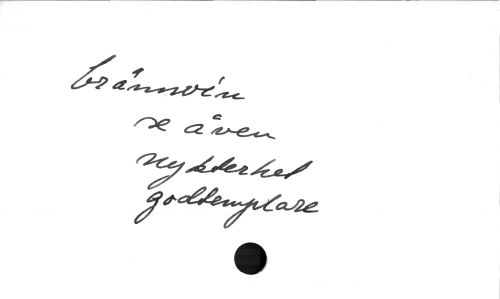 brännvin
se även
nykterhet
godtemplare